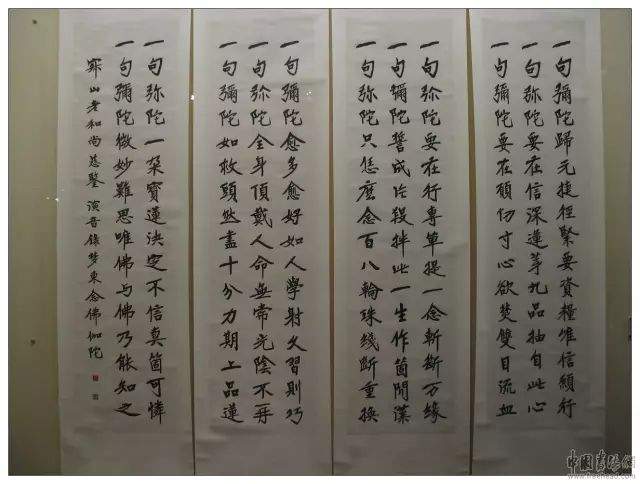 一句彌陀歸元捷徑緊要資糧惟信願行
一句弥陀要在信深蓮芽九品抽自此心
一句彌陀要在願切寸心欲焚雙目流血
一句弥陀要在行專單提一念斬斷万緣
一句彌陀誓成片段拌此一生作箇閒漢
一句弥陀只恁麼念百八輪珠綫斷重換
一句彌陀愈多愈好如人學射久習則巧
一句弥陀全身頂戴人命無常光陰不再
一句彌陀如救頭然盡十分力期上品蓮
一句弥陀一朵寶蓮決定不信真箇可憐
一句彌陀微妙難思唯佛与佛乃能知之
寂山老和尚慈鑒 演音錄夢東念佛伽陀
www.freehead.com